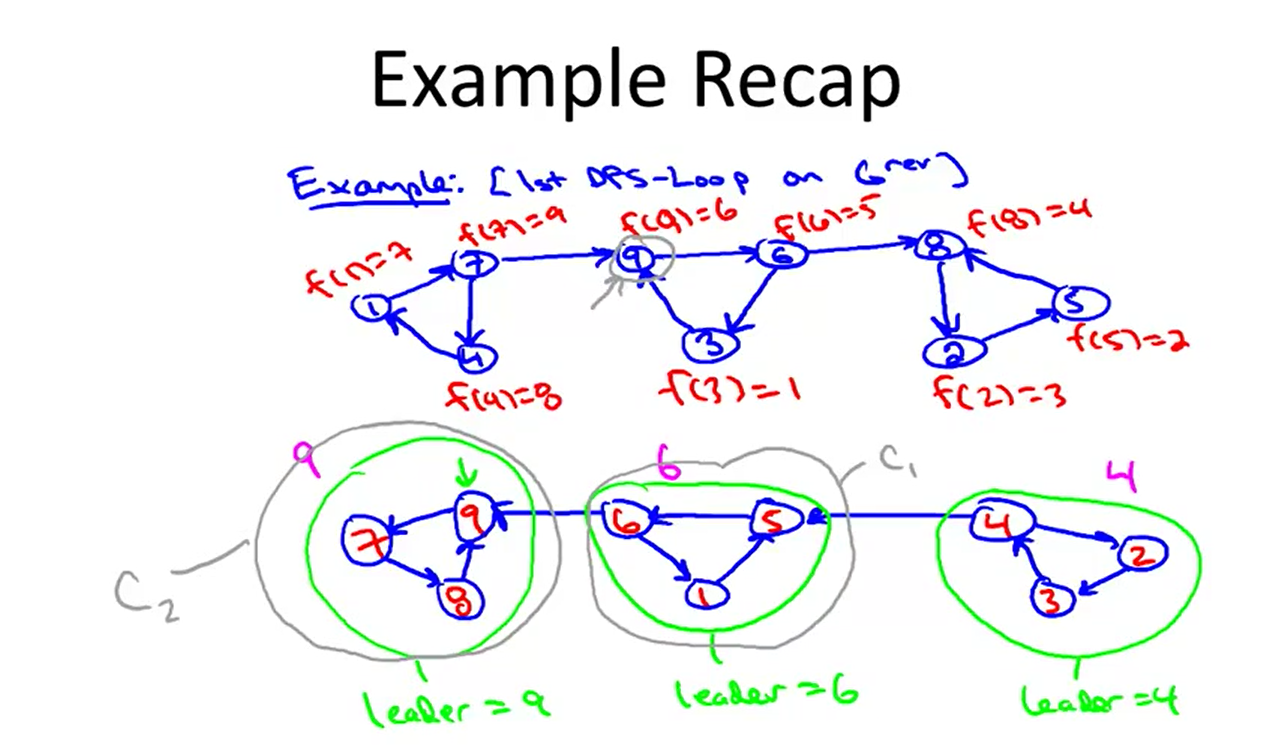 Example Recap
Example: [1st DFS-Loop on Grev]
f(1)=7 f(7)=9 f(9)=6 f(6)=5 f(8)=4
1 7 9 6 8
4 3 2 5
f(4)=8 f(3)=1 f(2)=3 f(5)=2
9 6 4
C1
C2
7 9 6 5 4 2
8 1 3
leader = 9 leader = 6 leader = 4